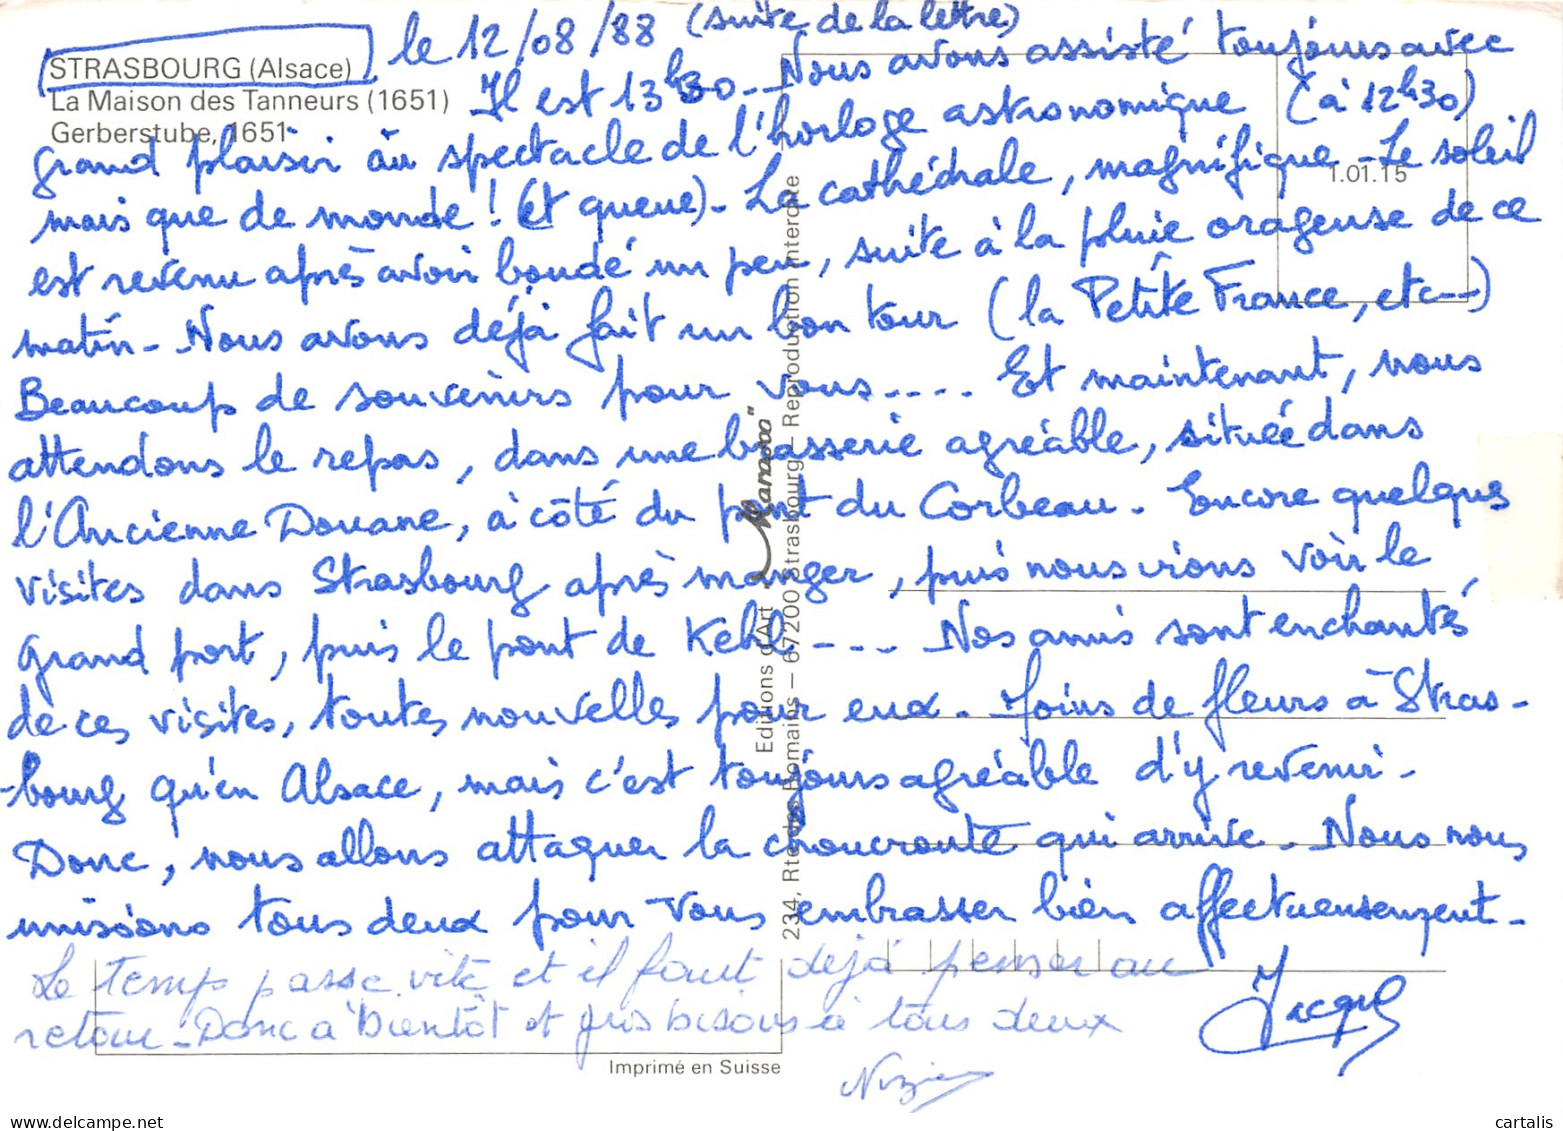 le 12/08/88 (suite de la lettre)
STRASBOURG (Alsace)
La Maison des Tanneurs (1651)
Gerberstube, 1651
1.01.15
Il est 13h30. Nous avons assisté toujours avec
grand plaisir au spectacle de l'horloge astronomique (à 12h30)
mais que de monde! (et queue). La cathédrale, magnifique. Le soleil
est revenu après avoir boudé un peu, suite à la pluie orageuse de ce
matin. Nous avons déjà fait un bon tour (la Petite France, etc---)
Beaucoup de souvenirs pour vous.... Et maintenant, nous
attendons le repas, dans une brasserie agréable, située dans
l'Ancienne Douane, à côté du pont du Corbeau. Encore quelques
visites dans Strasbourg après manger, puis nous irons voir le
grand port, puis le pont de Kehl.--- Nos amis sont enchantés
de ces visites, toutes nouvelles pour eux. Moins de fleurs à Stras-
-bourg qu'en Alsace, mais c'est toujours agréable d'y revenir.
Donc, nous allons attaquer la choucroute qui arrive. Nous nous
unissons tous deux pour vous embrasser bien affectueusement.
Le temps passe vite et il faut déjà penser au
retour. Donc à bientôt et gros bisous à tous deux
Editions d'Art
234, Rte des Romains – 67200 Strasbourg – Reproduction interdite
Imprimé en Suisse
cartalis
delcampe.net